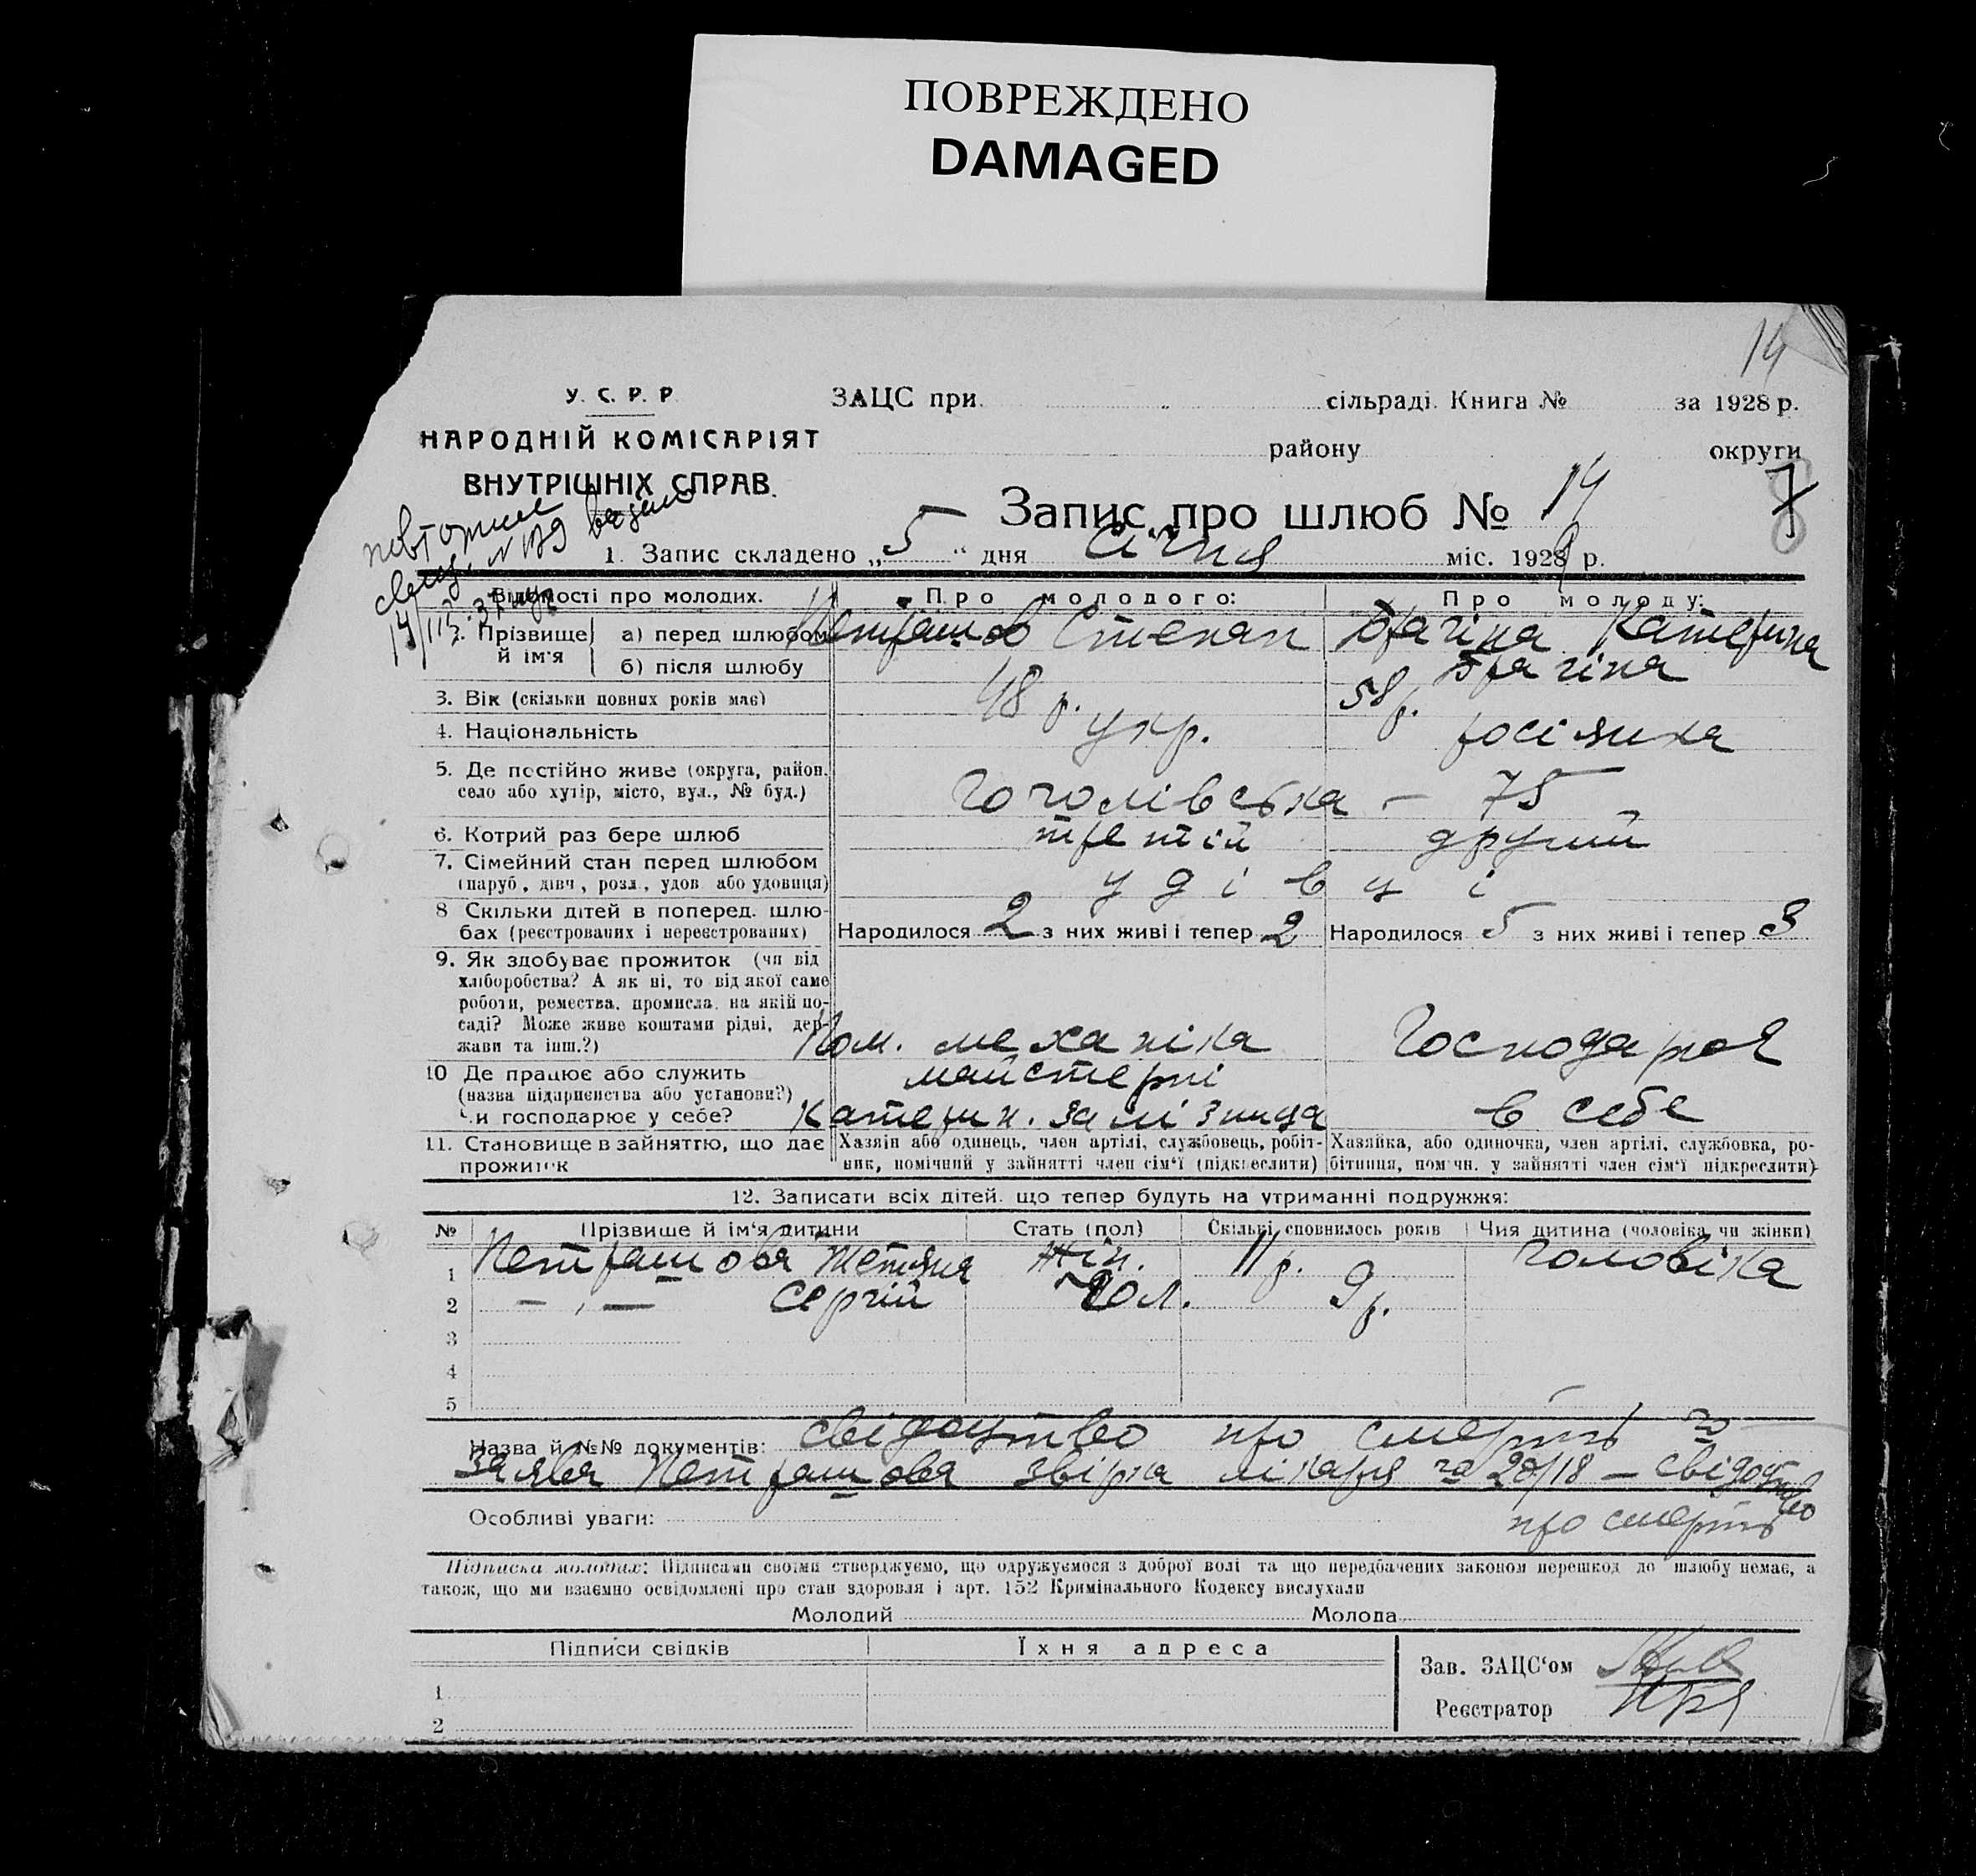 ПОВРЕЖДЕНО
DAMAGED
14
У. С. Р. Р.
НАРОДНІЙ КОМІСАРІЯТ
ВНУТРІШНІХ СПРАВ.
ЗАЦС при сільраді. Книга № за 1928 р.
району округи
Запис про шлюб № 14
1. Запис складено „5“ дня Січня міс. 1929 р.
Відомості про молодих. Про молодого: Про молоду:
2. Прізвище й ім'я
а) перед шлюбом Петрашов Степан Брагіна Катерина
б) після шлюбу Брагіна
3. Вік (скільки повних років має) 48 р. 58 р.
4. Національність укр. росіянка
5. Де постійно живе (округа, район, село або хутір, місто, вул., № буд.) Гоголівська – 75
6. Котрий раз бере шлюб третій другий
7. Сімейний стан перед шлюбом (паруб., дівч., розл., удов. або удовиця) удівці
8 Скільки дітей в поперед. шлюбах (реєстрованих і нереєстрованих) Народилося 2 з них живі і тепер 2 Народилося 5 з них живі і тепер 3
9. Як здобуває прожиток (чи від хліборобства? А як ні, то від якої саме роботи, ремества, промисла, на якій посаді? Може живе коштами рідні, держави та інш.?) Пом. механіка Господарюя
10 Де працює або служить (назва підприємства або установи?) Чи господарює у себе? майстерні Катерин. залізниця в себе
11. Становище в зайняттю, що дає прожиток
Хазяїн або одинець, член артілі, службовець, робітник, помічний у зайнятті член сім'ї (підкреслити)
Хазяйка, або одиночка, член артілі, службовка, робітниця, помічн. у зайнятті член сім'ї підкреслити)
12. Записати всіх дітей, що тепер будуть на утриманні подружжя:
№ Прізвище й ім'я дитини Стать (пол) Скількі сповнилось років Чия дитина (чоловіка чи жінки)
1 Петрашова Тетяна Жін. 11 р. Чоловіка
2 — „ — Сергій Чол. 9 р.
3
4
5
Назва й №№ документів: свідоцтво про смерть
Заява Петрашова звірка лікаря за 20/18 – свідоцтво
Особливі уваги: про смерть
Підписка молодих: Підписами своїми стверджуємо, що одружуємося з доброї волі та що передбачених законом перешкод до шлюбу немає, а
також, що ми взаємно освідомлені про стан здоровля і арт. 152 Кримінального Кодексу вислухали
Молодий Молода
Підписи свідків Їхня адреса
Зав. ЗАЦС'ом
1
Реєстратор
2